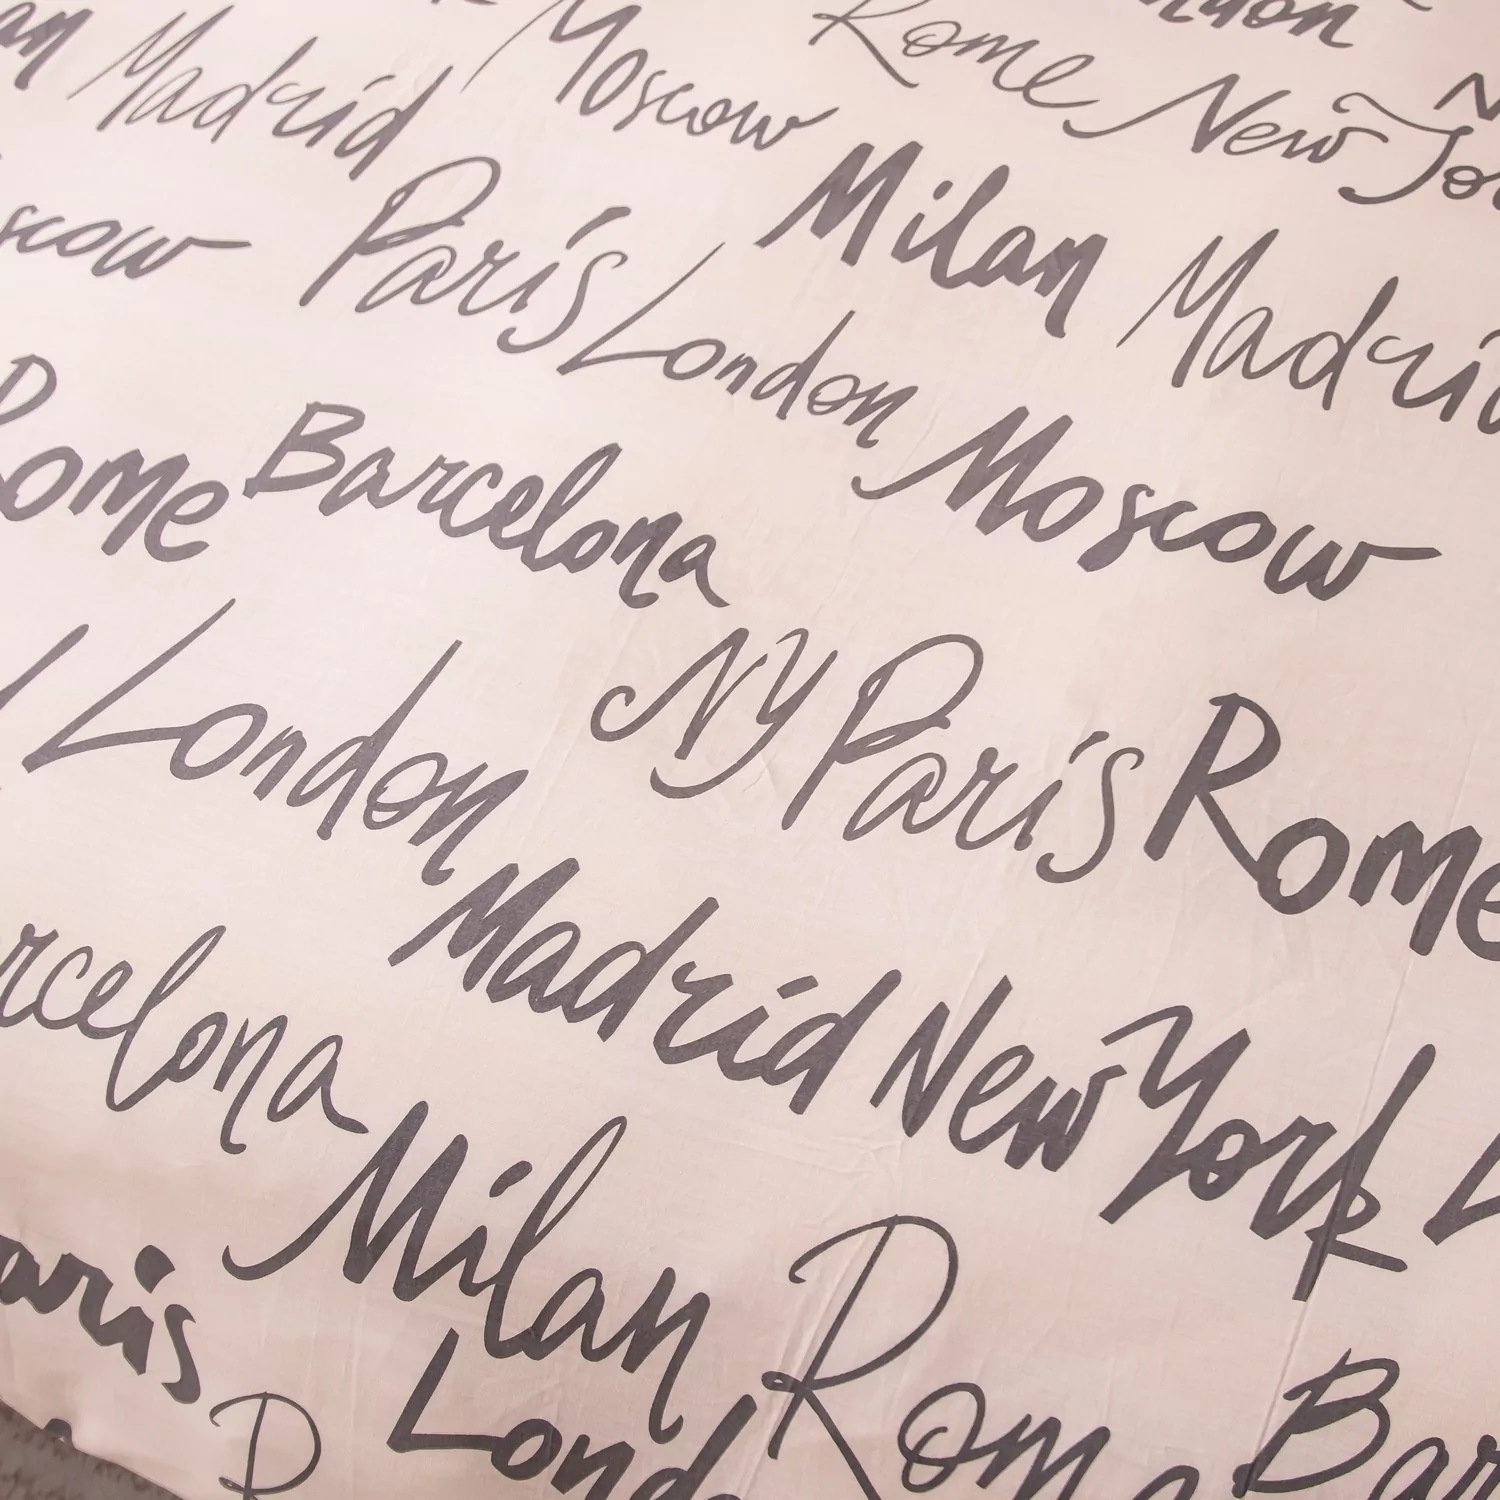 Rome New Yo
Madrid Moscow Milan Madrid
Paris London Moscow
Rome Barcelona NY Paris Rome
London Madrid New York
Barcelona Milan Rome Bar
Paris London